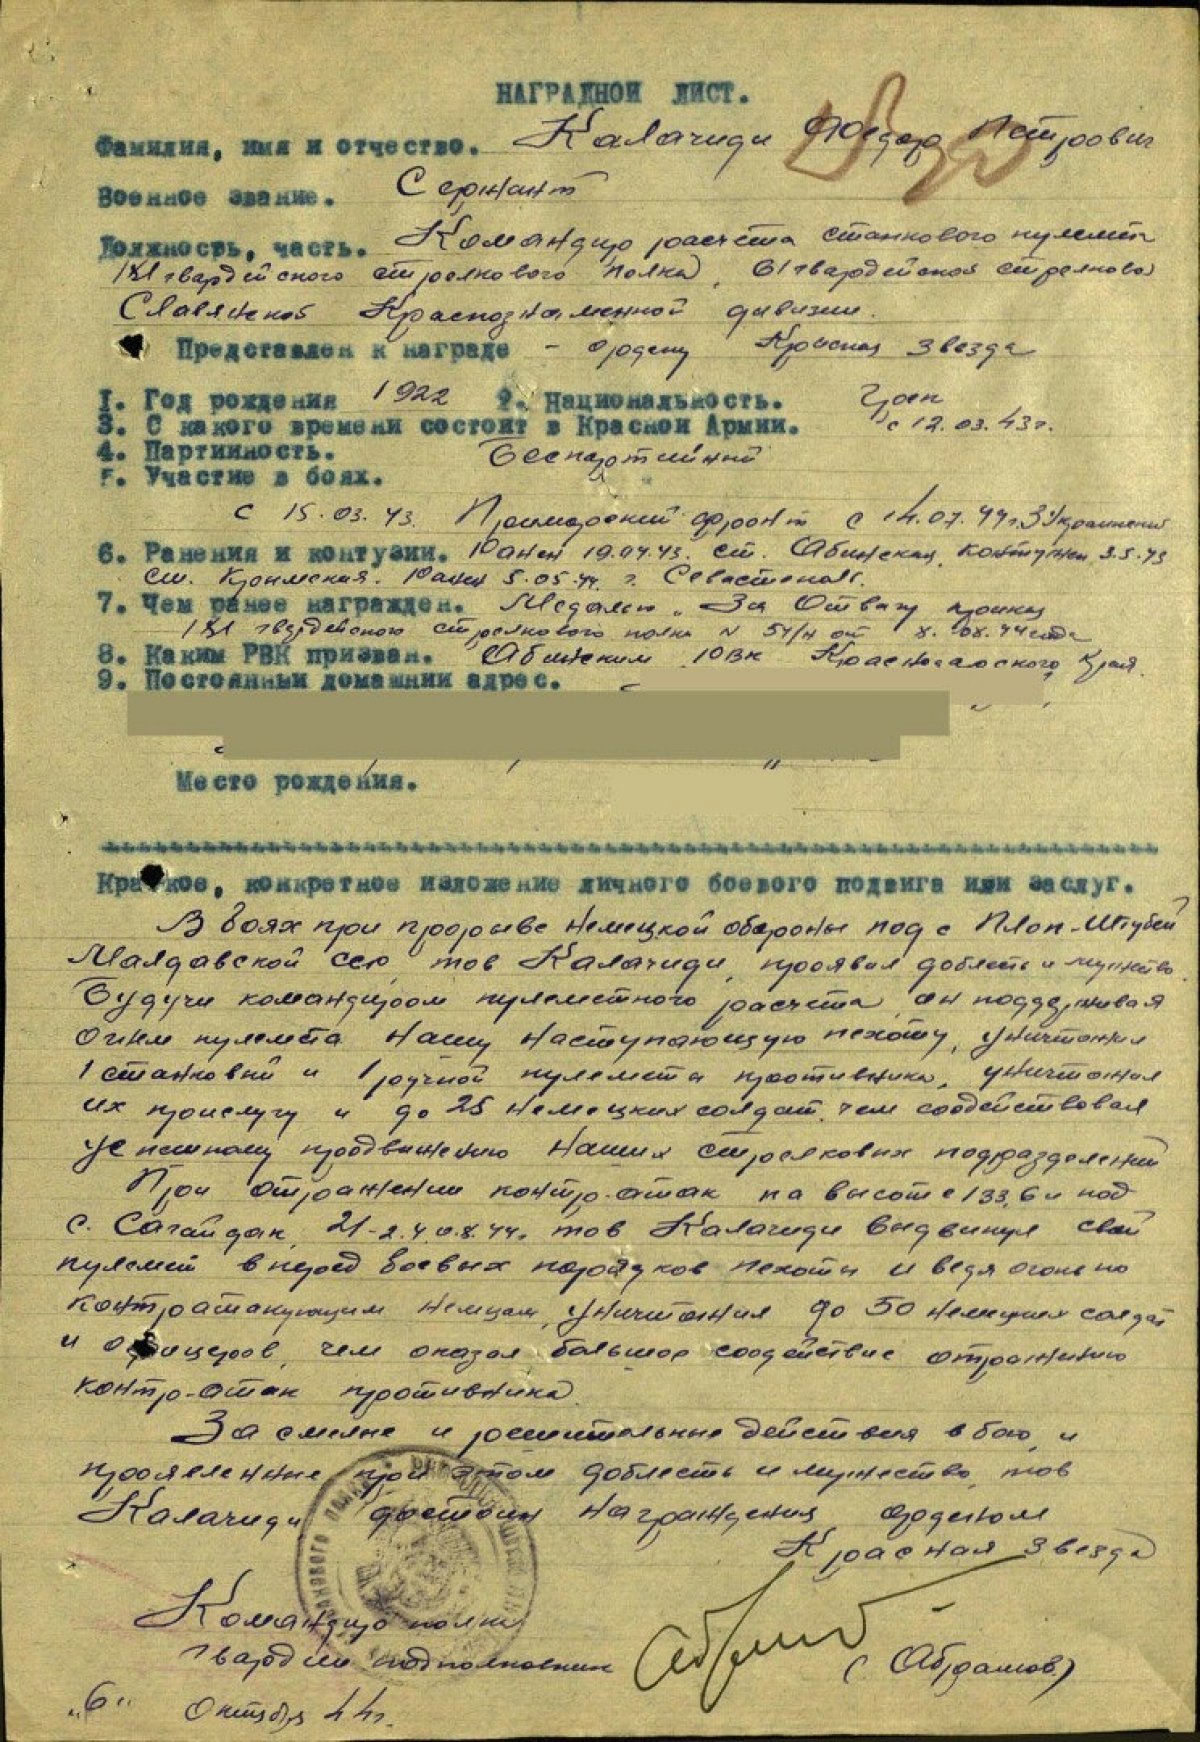 НАГРАДНОЙ ЛИСТ.
Фамилия, имя и отчество. Калачиди Федор Петрович
Военное звание. Сержант
Должность, часть. Командир расчета станкового пулемета
181 гвардейского стрелкового полка, 61 гвардейской стрелковой
Славянской Краснознаменной дивизии.
Представлен к награде - ордену Красная Звезда
1. Год рождения 1922 2. Национальность. Грек
3. С какого времени состоит в Красной Армии. с 12.03.43г.
4. Партийность. Беспартийный
5. Участие в боях.
с 15.03.43. Приморский фронт с 14.07.44г. 3 Украинский
6. Ранения и контузии. Ранен 19.04.43. ст. Абинская, контужен 3.5.43
ст. Крымская. Ранен 5.05.44. г. Севастополь.
7. Чем ранее награжден. Медалью "За Отвагу приказ
181 гвардейского стрелкового полка N 54/н от 8.08.44 года
8. Каким РВК призван. Абинским РВК Краснодарского Края.
9. Постоянный домашний адрес.
Место рождения.
Краткое, конкретное изложение личного боевого подвига или заслуг.
В боях при прорыве немецкой обороны под с Плоп-Штубей
Малдавской ССР, тов Калачиди, проявил доблесть и мужество.
Будучи командиром пулеметного расчета, он поддерживая
огнем пулемета нашу наступающую пехоту, уничтожил
1 станковый и 1 ручной пулемета противника, уничтожил
их прислугу и до 25 немецких солдат, чем содействовал
успешному продвижению наших стрелковых подразделений
При отражении контр-атак на высоте 133,6 и под
с. Сагайдак, 21-2.4.08.44г. тов Калачиди выдвинул свой
пулемет вперед боевых порядков пехоты и ведя огонь по
контратакующим немцам, уничтожил до 50 немецких солдат
и офицеров, чем оказал большое содействие отражению
контр-атак противника.
За смелые и решительные действия в бою, и
проявленные при этом доблесть и мужество, тов
Калачиди достоин награждения орденом
Красная Звезда
Командир полка
гвардии подполковник (Абрамов)
"6" Октября 44г.